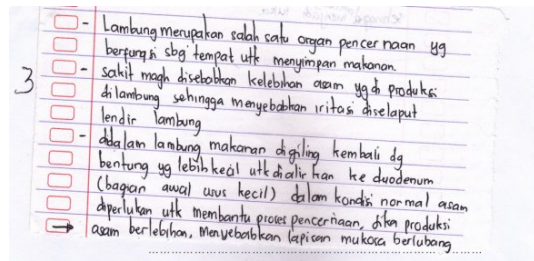 - Lambung merupakan salah satu organ pencernaan yg
berfungsi sbg tempat utk menyimpan makanan.
3 - sakit magh disebabkan kelebihan asam yg di produksi
dilambung sehingga menyebabkan iritasi diselaput
lendir lambung
- ddalam lambung makanan digiling kembali dg
bentung yg lebih kecil utk dialir kan ke duodenum
(bagian awal usus kecil) dalam kondisi normal asam
diperlukan utk membantu proses pencernaan, Jika produksi
→ asam berlebihan, Menyebabkan lapisan mukosa berlubang